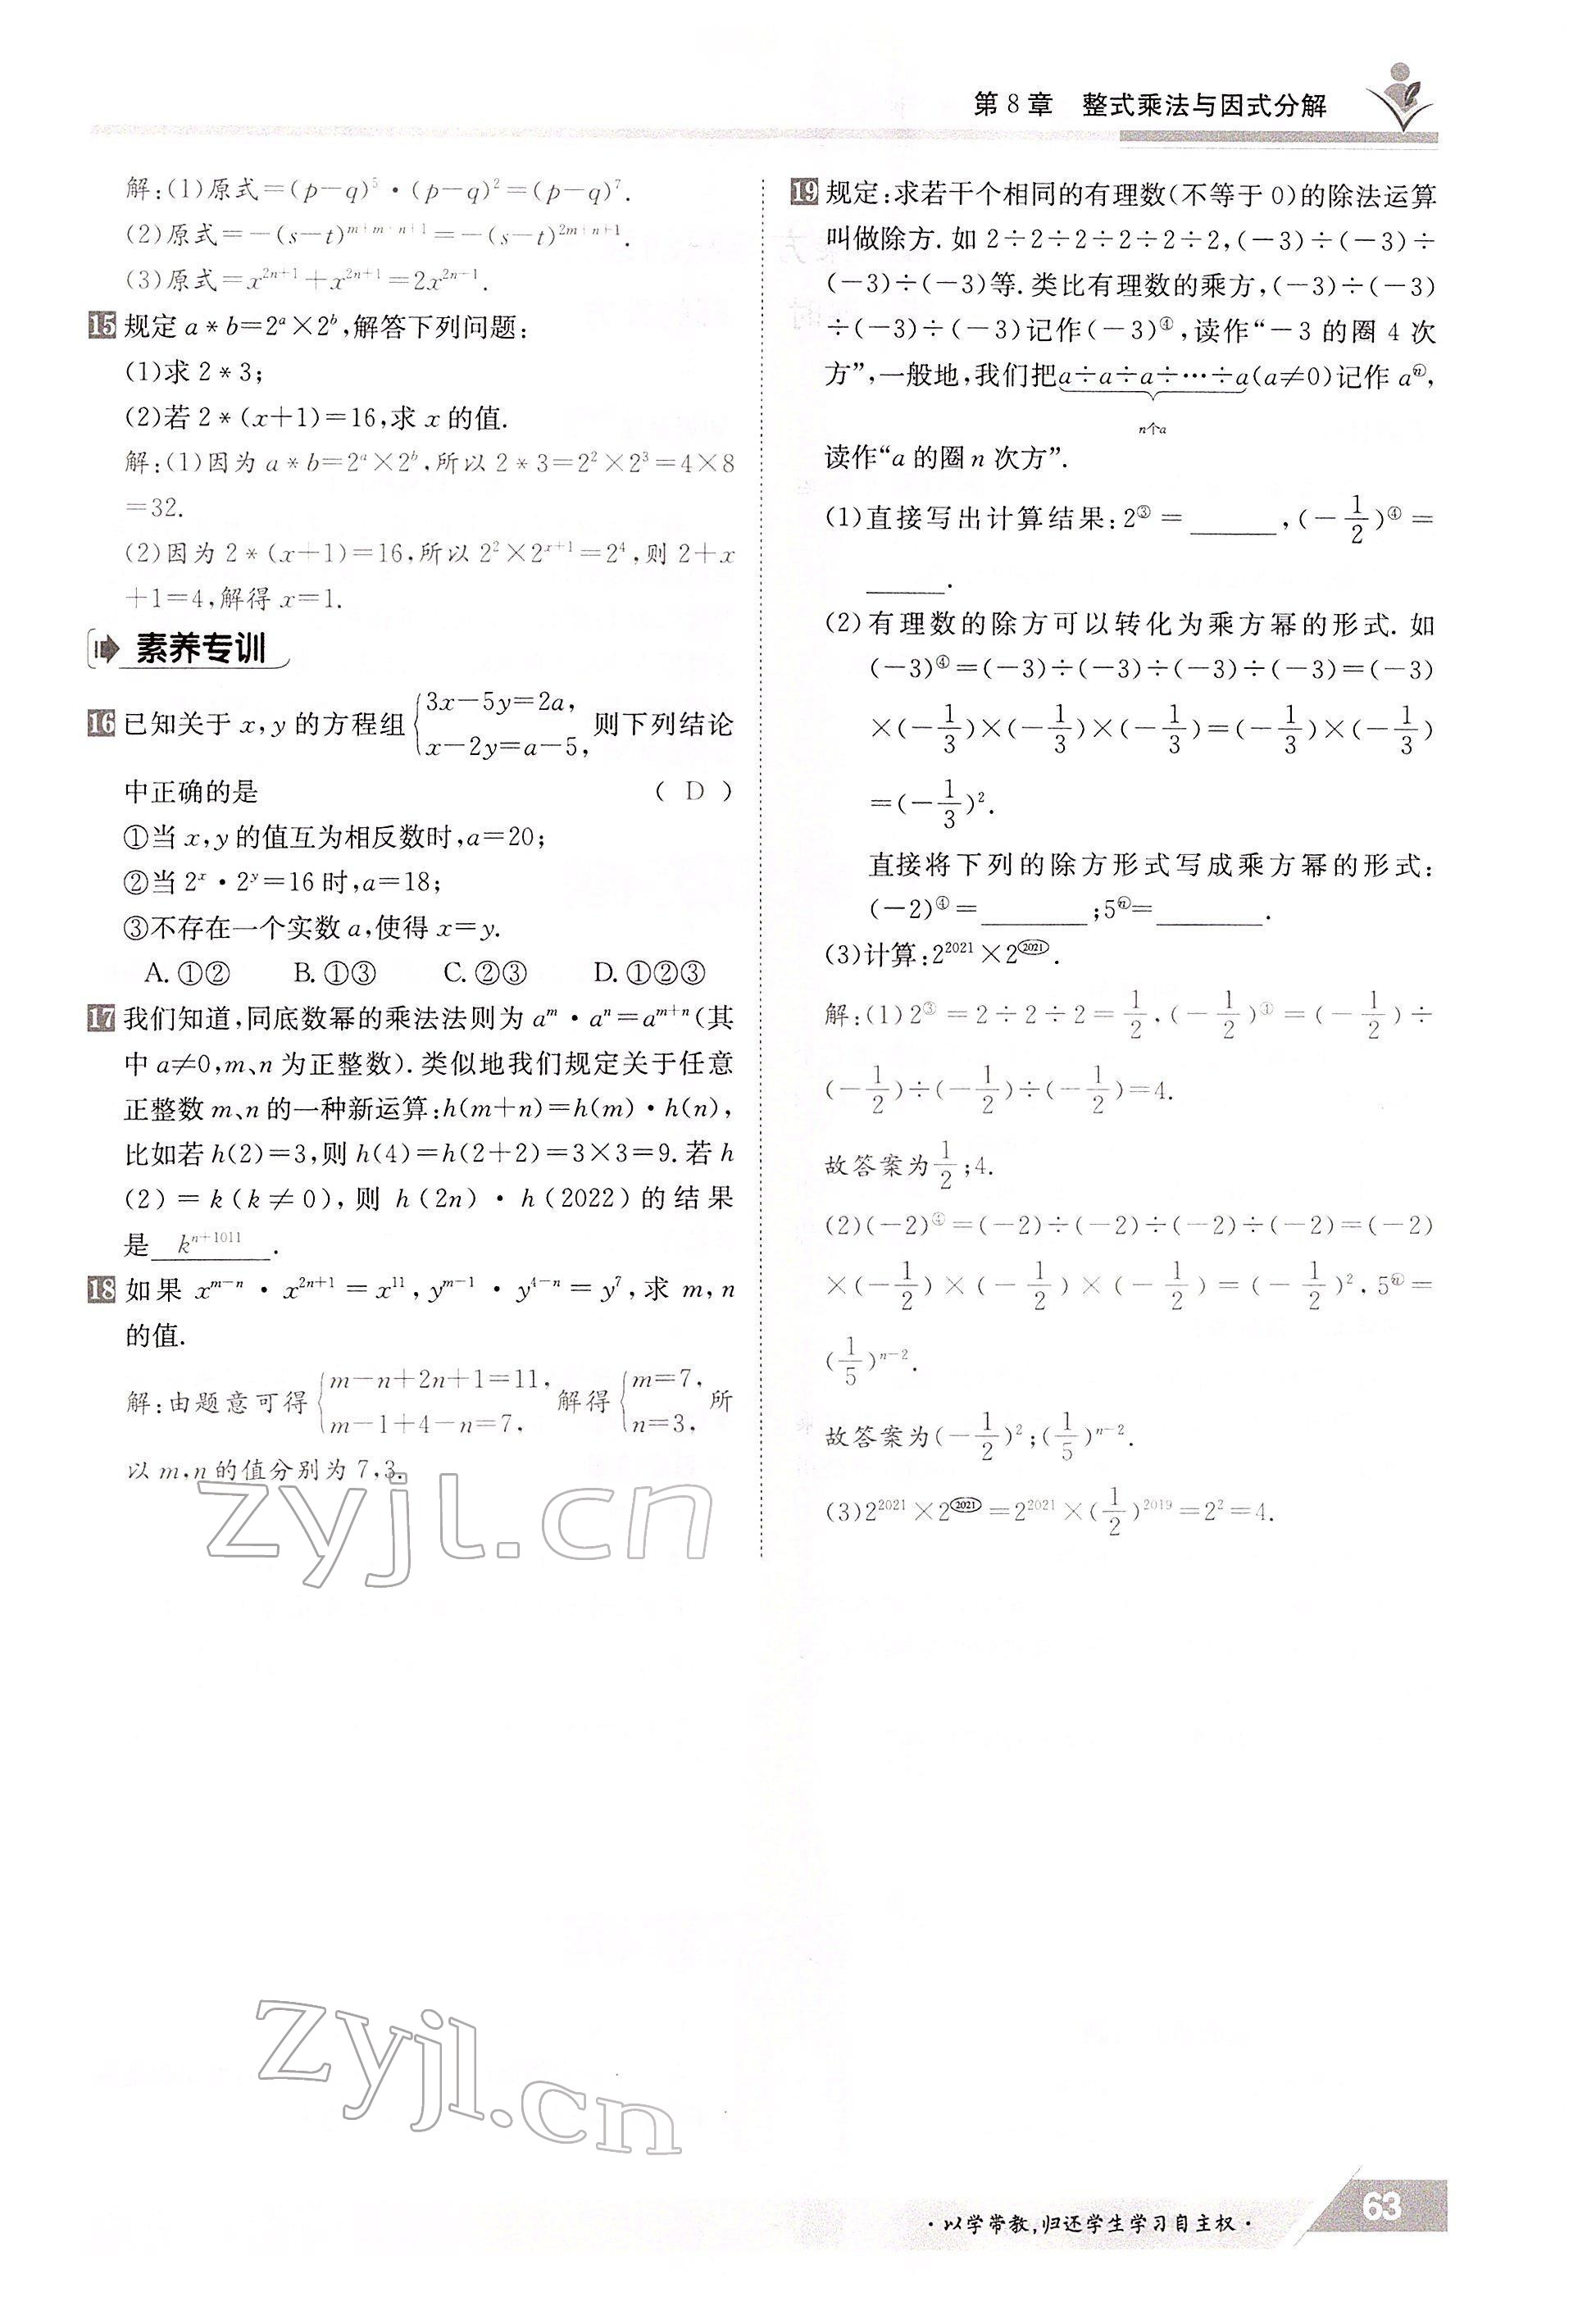 第8章 整式乘法与因式分解
解:(1)原式=(p-q)⁵·(p-q)²=(p-q)⁷.
(2)原式=-(s-t)^{m+m+n+1}=-(s-t)^{2m+n+1}.
(3)原式=x^{2n+1}+x^{2n+1}=2x^{2n+1}.
15 规定a*b=2^a×2^b,解答下列问题:
(1)求2*3;
(2)若2*(x+1)=16,求x的值.
解:(1)因为a*b=2^a×2^b,所以2*3=2²×2³=4×8
=32.
(2)因为2*(x+1)=16,所以2²×2^{x+1}=2⁴,则2+x
+1=4,解得x=1.
素养专训
16 已知关于x,y的方程组{3x-5y=2a, x-2y=a-5,则下列结论
中正确的是 ( D )
①当x,y的值互为相反数时,a=20;
②当2^x·2^y=16时,a=18;
③不存在一个实数a,使得x=y.
A.①② B.①③ C.②③ D.①②③
17 我们知道,同底数幂的乘法法则为a^m·a^n=a^{m+n}(其
中a≠0,m、n为正整数).类似地我们规定关于任意
正整数m、n的一种新运算:h(m+n)=h(m)·h(n),
比如若h(2)=3,则h(4)=h(2+2)=3×3=9.若h
(2)=k(k≠0),则h(2n)·h(2022)的结果
是 k^{n+1011} .
18 如果x^{m-n}·x^{2n+1}=x^{11},y^{m-1}·y^{4-n}=y⁷,求m,n
的值.
解:由题意可得{m-n+2n+1=11, m-1+4-n=7,解得{m=7, n=3,所
以m,n的值分别为7,3.
19 规定:求若干个相同的有理数(不等于0)的除法运算
叫做除方.如2÷2÷2÷2÷2÷2,(-3)÷(-3)÷
(-3)÷(-3)等.类比有理数的乘方,(-3)÷(-3)
÷(-3)÷(-3)记作(-3)^④,读作“-3的圈4次
方”,一般地,我们把a÷a÷a÷…÷a(a≠0)记作a^ⓝ,
n个a
读作“a的圈n次方”.
(1)直接写出计算结果:2^③=______,(-1/2)^④=
______.
(2)有理数的除方可以转化为乘方幂的形式.如
(-3)^④=(-3)÷(-3)÷(-3)÷(-3)=(-3)
×(-1/3)×(-1/3)×(-1/3)=(-1/3)×(-1/3)
=(-1/3)².
直接将下列的除方形式写成乘方幂的形式:
(-2)^④=________;5^ⓝ=________.
(3)计算:2^{2021}×2^{(2021)}.
解:(1)2^③=2÷2÷2=1/2,(-1/2)^④=(-1/2)÷
(-1/2)÷(-1/2)÷(-1/2)=4.
故答案为1/2;4.
(2)(-2)^④=(-2)÷(-2)÷(-2)÷(-2)=(-2)
×(-1/2)×(-1/2)×(-1/2)=(-1/2)².5^ⓝ=
(1/5)^{n-2}.
故答案为(-1/2)²;(1/5)^{n-2}.
(3)2^{2021}×2^{(2021)}=2^{2021}×(1/2)^{2019}=2²=4.
zyjl.cn
zyjl.cn
·以学带教,归还学生学习自主权·
63